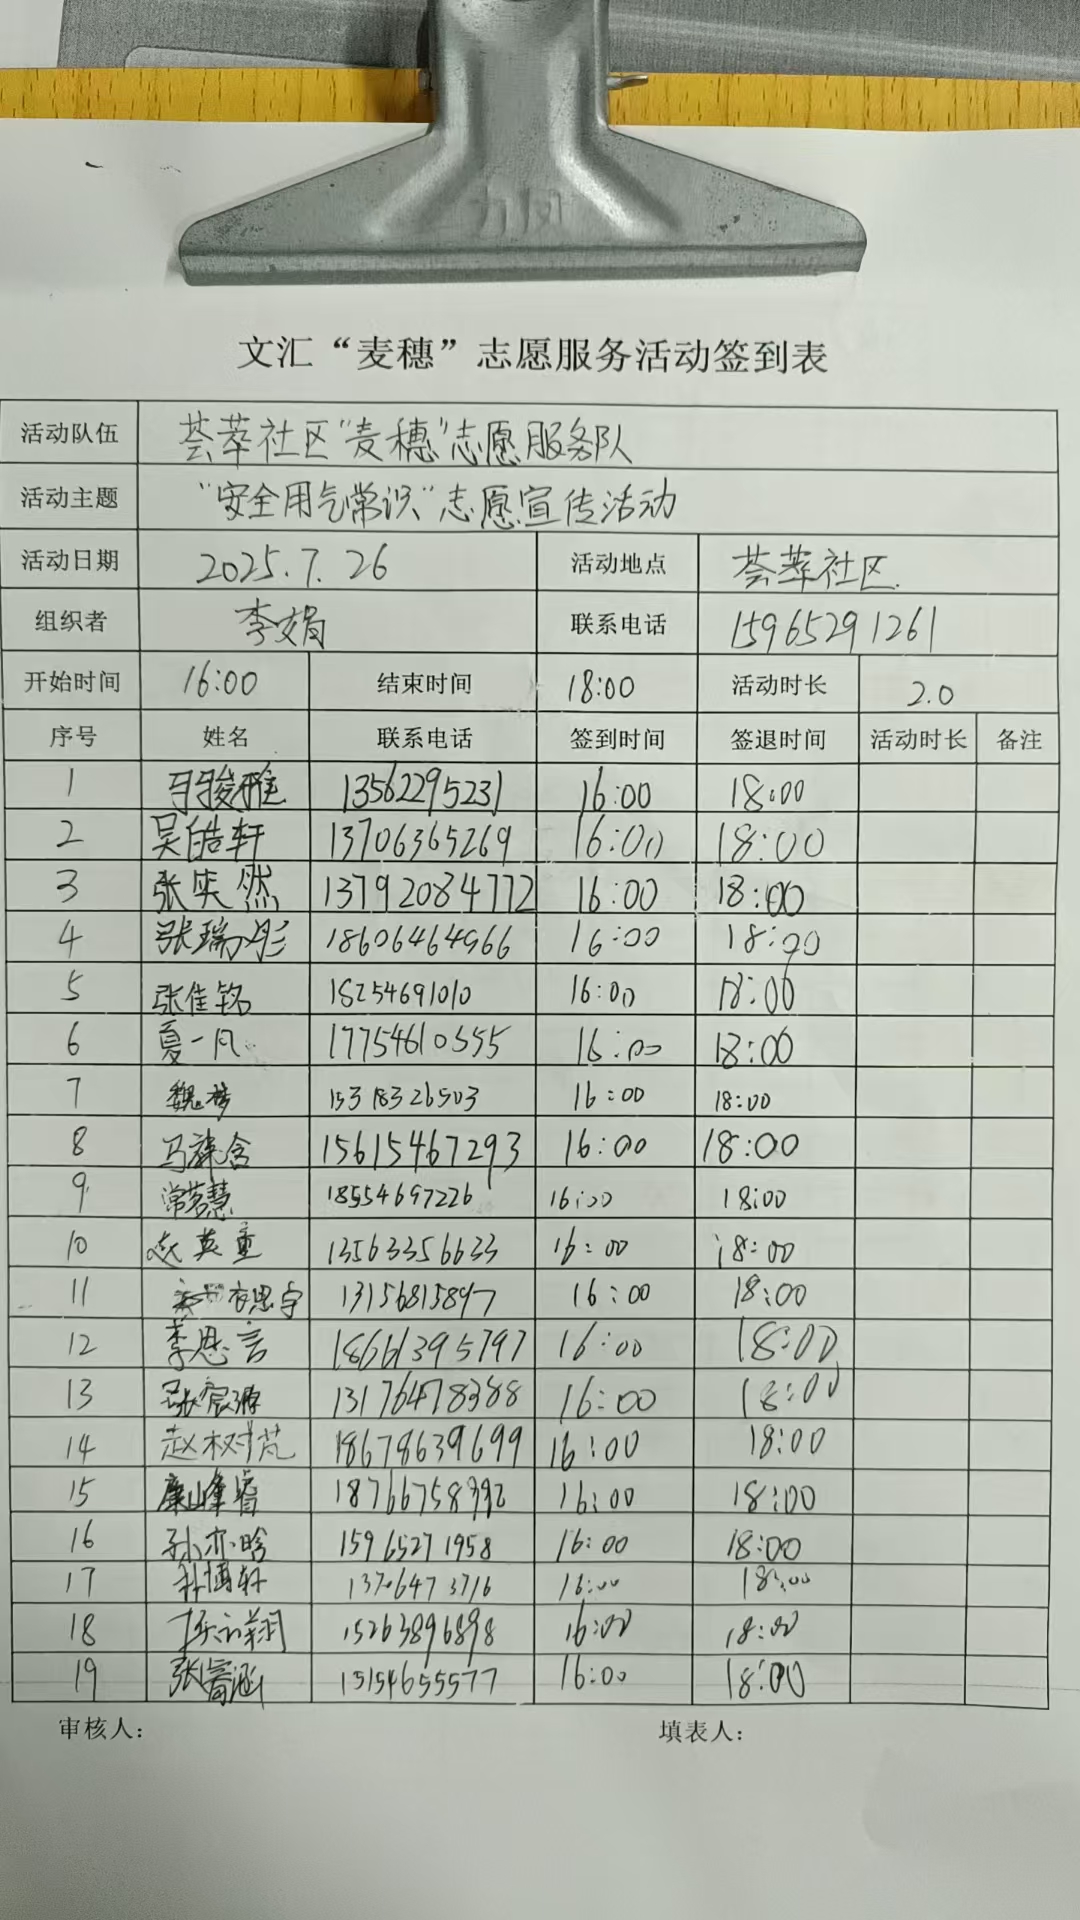 文汇“麦穗”志愿服务活动签到表
活动队伍 荟萃社区“麦穗”志愿服务队
活动主题 “安全用气常识”志愿宣传活动
活动日期 2025.7.26 活动地点 荟萃社区.
组织者 李娟 联系电话 15965291261
开始时间 16:00 结束时间 18:00 活动时长 2.0
序号 姓名 联系电话 签到时间 签退时间 活动时长 备注
1 13562295231 16:00 18:00
2 吴皓轩 13706365269 16:00 18:00
3 张奕然 13792084772 16:00 18:00
4 张瑞彤 18606464966 16:00 18:00
5 张佳铭 18254691010 16:00 18:00
6 夏一凡 17754610555 16:00 18:00
7 魏梦 15318326503 16:00 18:00
8 15615467293 16:00 18:00
9 常茗慧 18554697226 16:00 18:00
10 13563356633 16:00 18:00
11 13156815897 16:00 18:00
12 李思言 18661395797 16:00 18:00
13 张宸源 13176478388 16:00 18:00
14 赵树芃 18678639699 16:00 18:00
15 康峰睿 18766758992 16:00 18:00
16 孙亦晗 15965271958 16:00 18:00
17 博轩 16:00 18:00
18 15263896898 16:00 18:00
19 张睿涵 15154655577 16:00 18:00
审核人： 填表人：